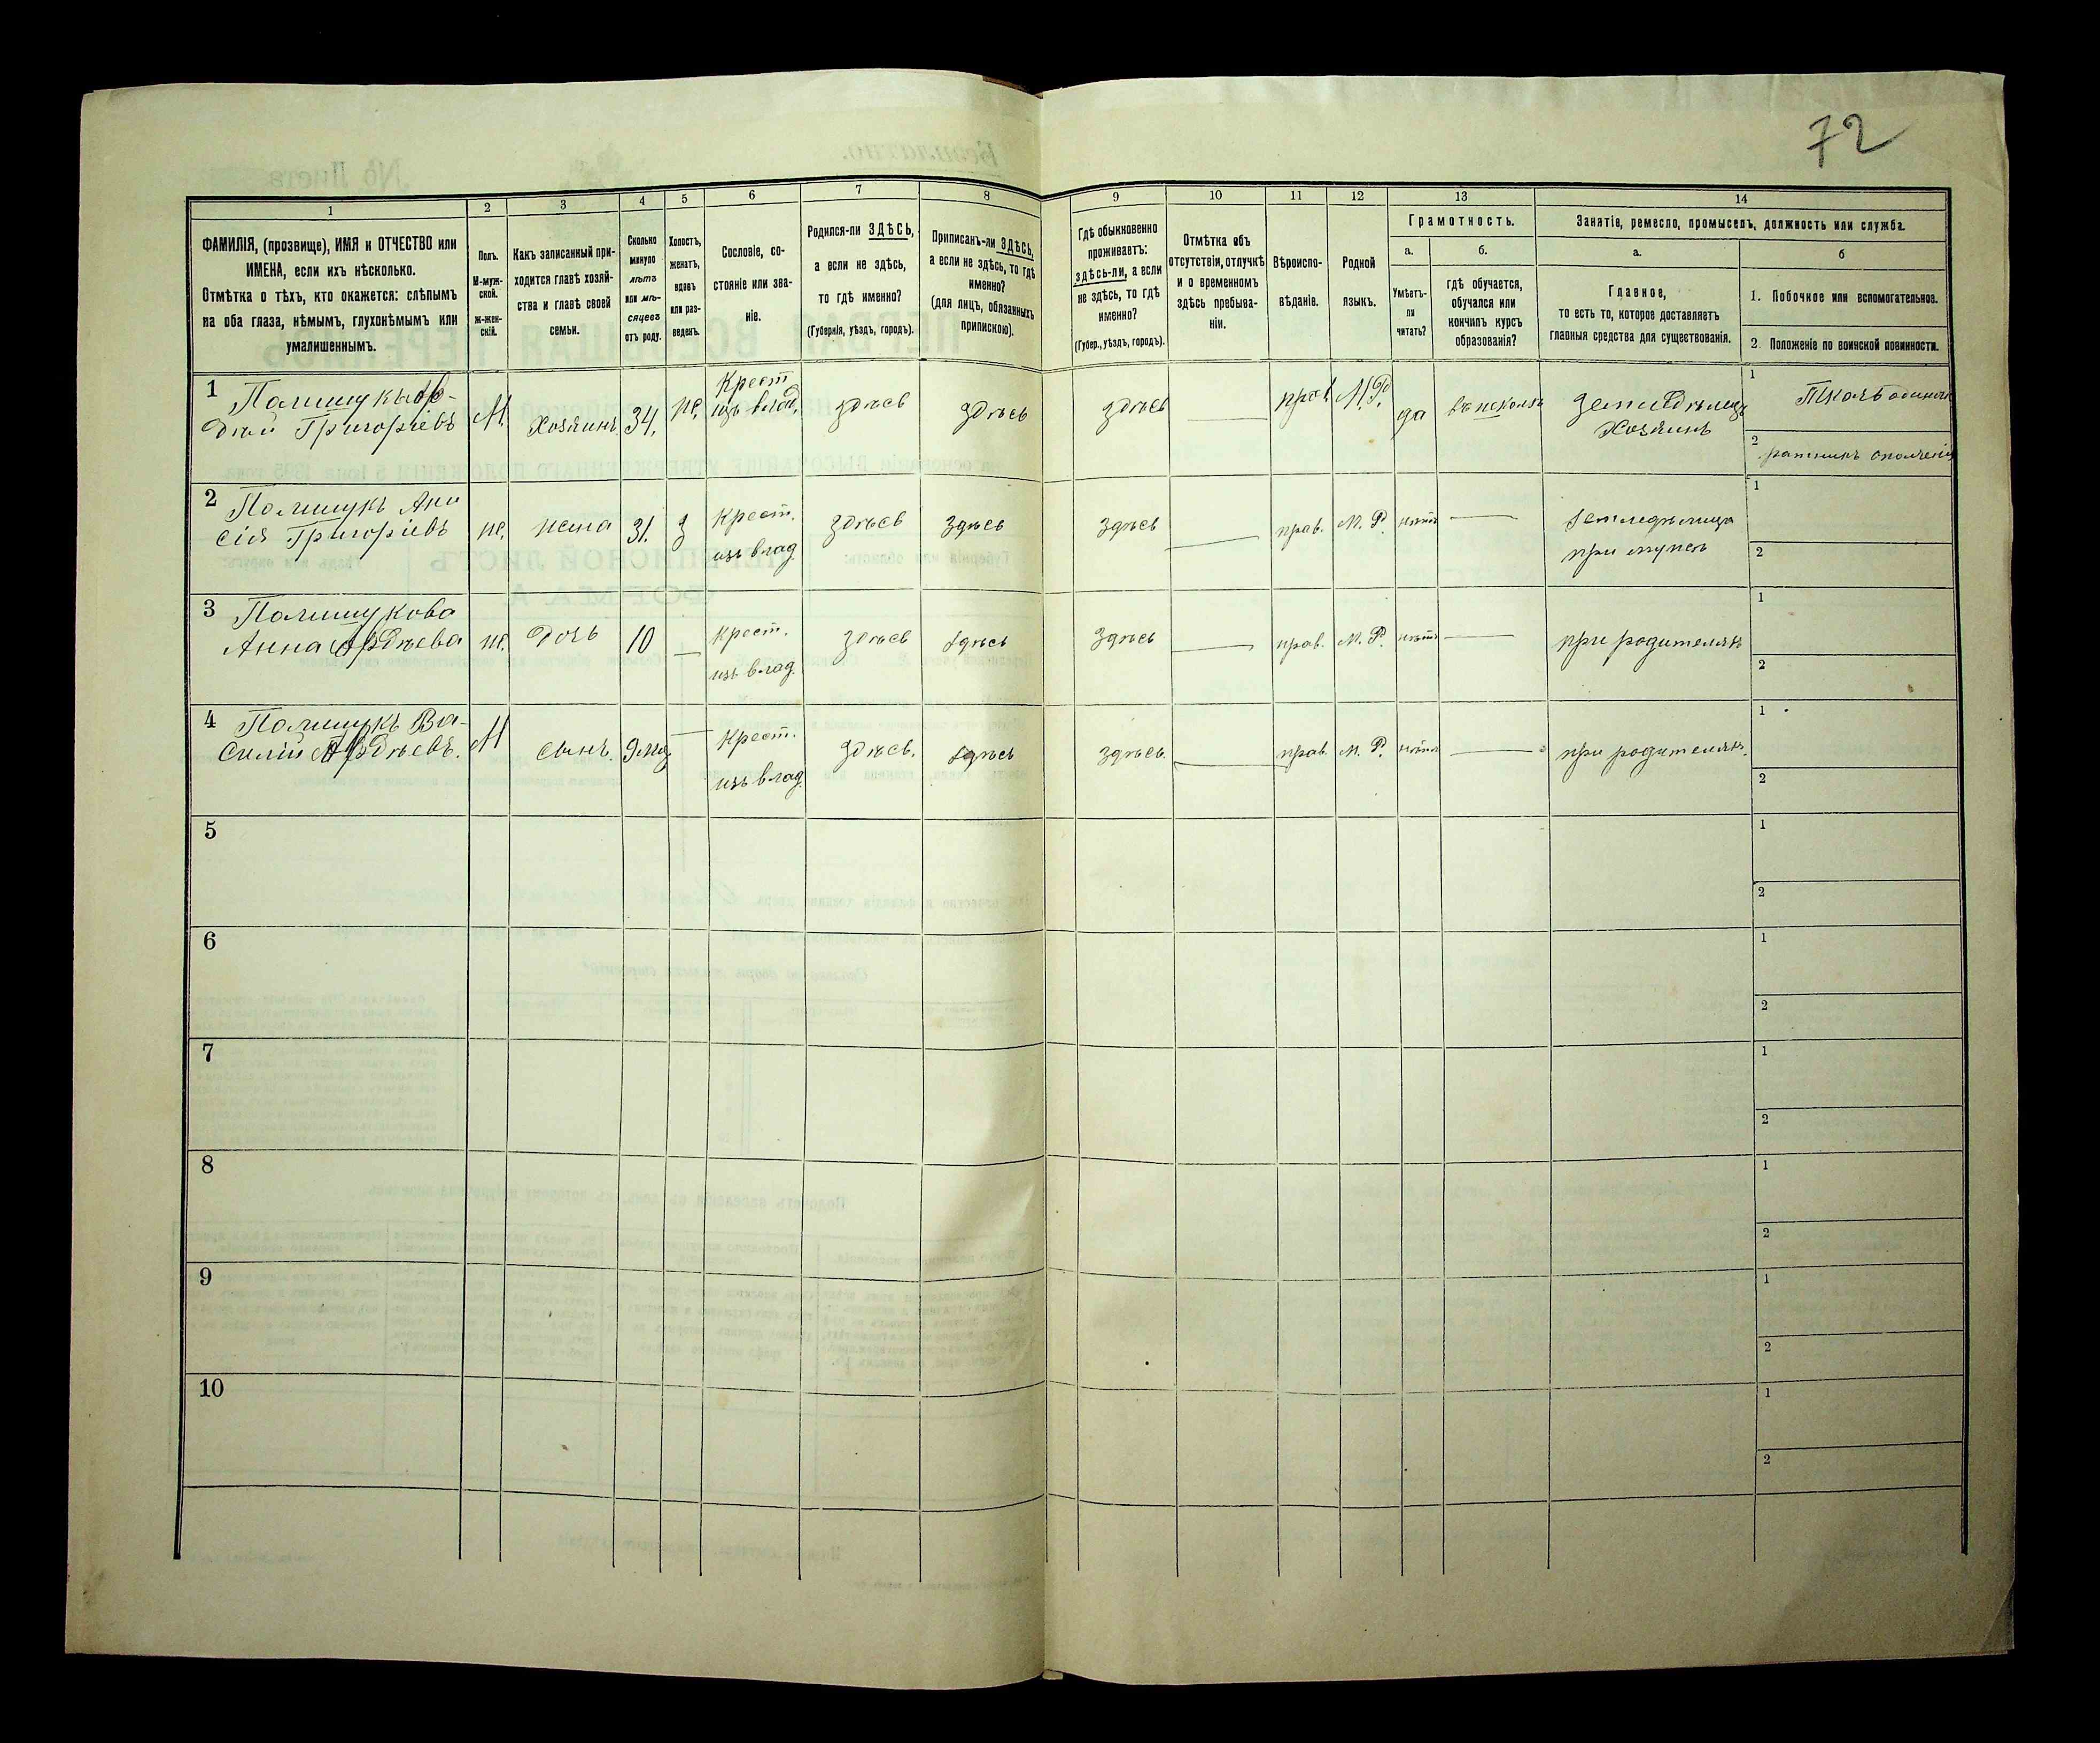 72
1 2 3 4 5 6 7 8 9 10 11 12 13 14
ФАМИЛІЯ, (прозвище), ИМЯ и ОТЧЕСТВО или
ИМЕНА, если ихъ нѣсколько.
Отмѣтка о тѣхъ, кто окажется: слѣпымъ
на оба глаза, нѣмымъ, глухонѣмымъ или
умалишеннымъ.
Полъ.
М-муж-
ской.
ж-жен-
скій.
Какъ записанный при-
ходится главѣ хозяй-
ства и главѣ своей
семьи.
Сколько
минуло
лѣтъ
или мѣ-
сяцевъ
отъ роду.
Холостъ,
женатъ,
вдовъ
или раз-
веденъ.
Сословіе, со-
стояніе или зва-
ніе.
Родился-ли ЗДѢСЬ,
а если не здѣсь,
то гдѣ именно?
(Губернія, уѣздъ, городъ).
Приписанъ-ли ЗДѢСЬ,
а если не здѣсь, то гдѣ
именно?
(для лицъ, обязанныхъ
припискою).
Гдѣ обыкновенно
проживаетъ:
здѣсь-ли, а если
не здѣсь, то гдѣ
именно?
(Губер., уѣздъ, городъ).
Отмѣтка объ
отсутствіи, отлучкѣ
и о временномъ
здѣсь пребыва-
ніи.
Вѣроиспо-
вѣданіе.
Родной
языкъ.
Грамотность.
а.
Умѣетъ-
ли
читать?
б.
гдѣ обучается,
обучался или
кончилъ курсъ
образованія?
Занятіе, ремесло, промыселъ, должность или служба.
а.
Главное,
то есть то, которое доставляетъ
главныя средства для существованія.
б
1. Побочное или вспомогательное.
2. Положеніе по воинской повинности.
1 Полищукъ Ав-
дѣй Григоріевъ М. Хозяинъ 34. же. Крест изъ влад. здѣсь здѣсь здѣсь прав М. Р. да въ школѣ Земледѣлецъ
Хозяинъ
1 Ткачъ
2 ратникъ ополченія
2 Полищукъ Ани
сія Григоріевъ же. жена 31. з Крест. изъ влад. здѣсь здѣсь здѣсь прав. М. Р. нѣтъ земледѣлица
при мужѣ
1
2
3 Полищукова
Анна Авдѣева же. Дочь 10 Крест. изъ влад. здѣсь здѣсь здѣсь прав. М. Р. нѣтъ при родителяхъ
1
2
4 Полищукъ Ва-
силій Авдѣевъ. М сынъ. 9 мѣс Крест. изъ влад. здѣсь. здѣсь здѣсь. прав. М. Р. нѣтъ при родителяхъ.
1
2
5
1
2
6
1
2
7
1
2
8
1
2
9
1
2
10
1
2